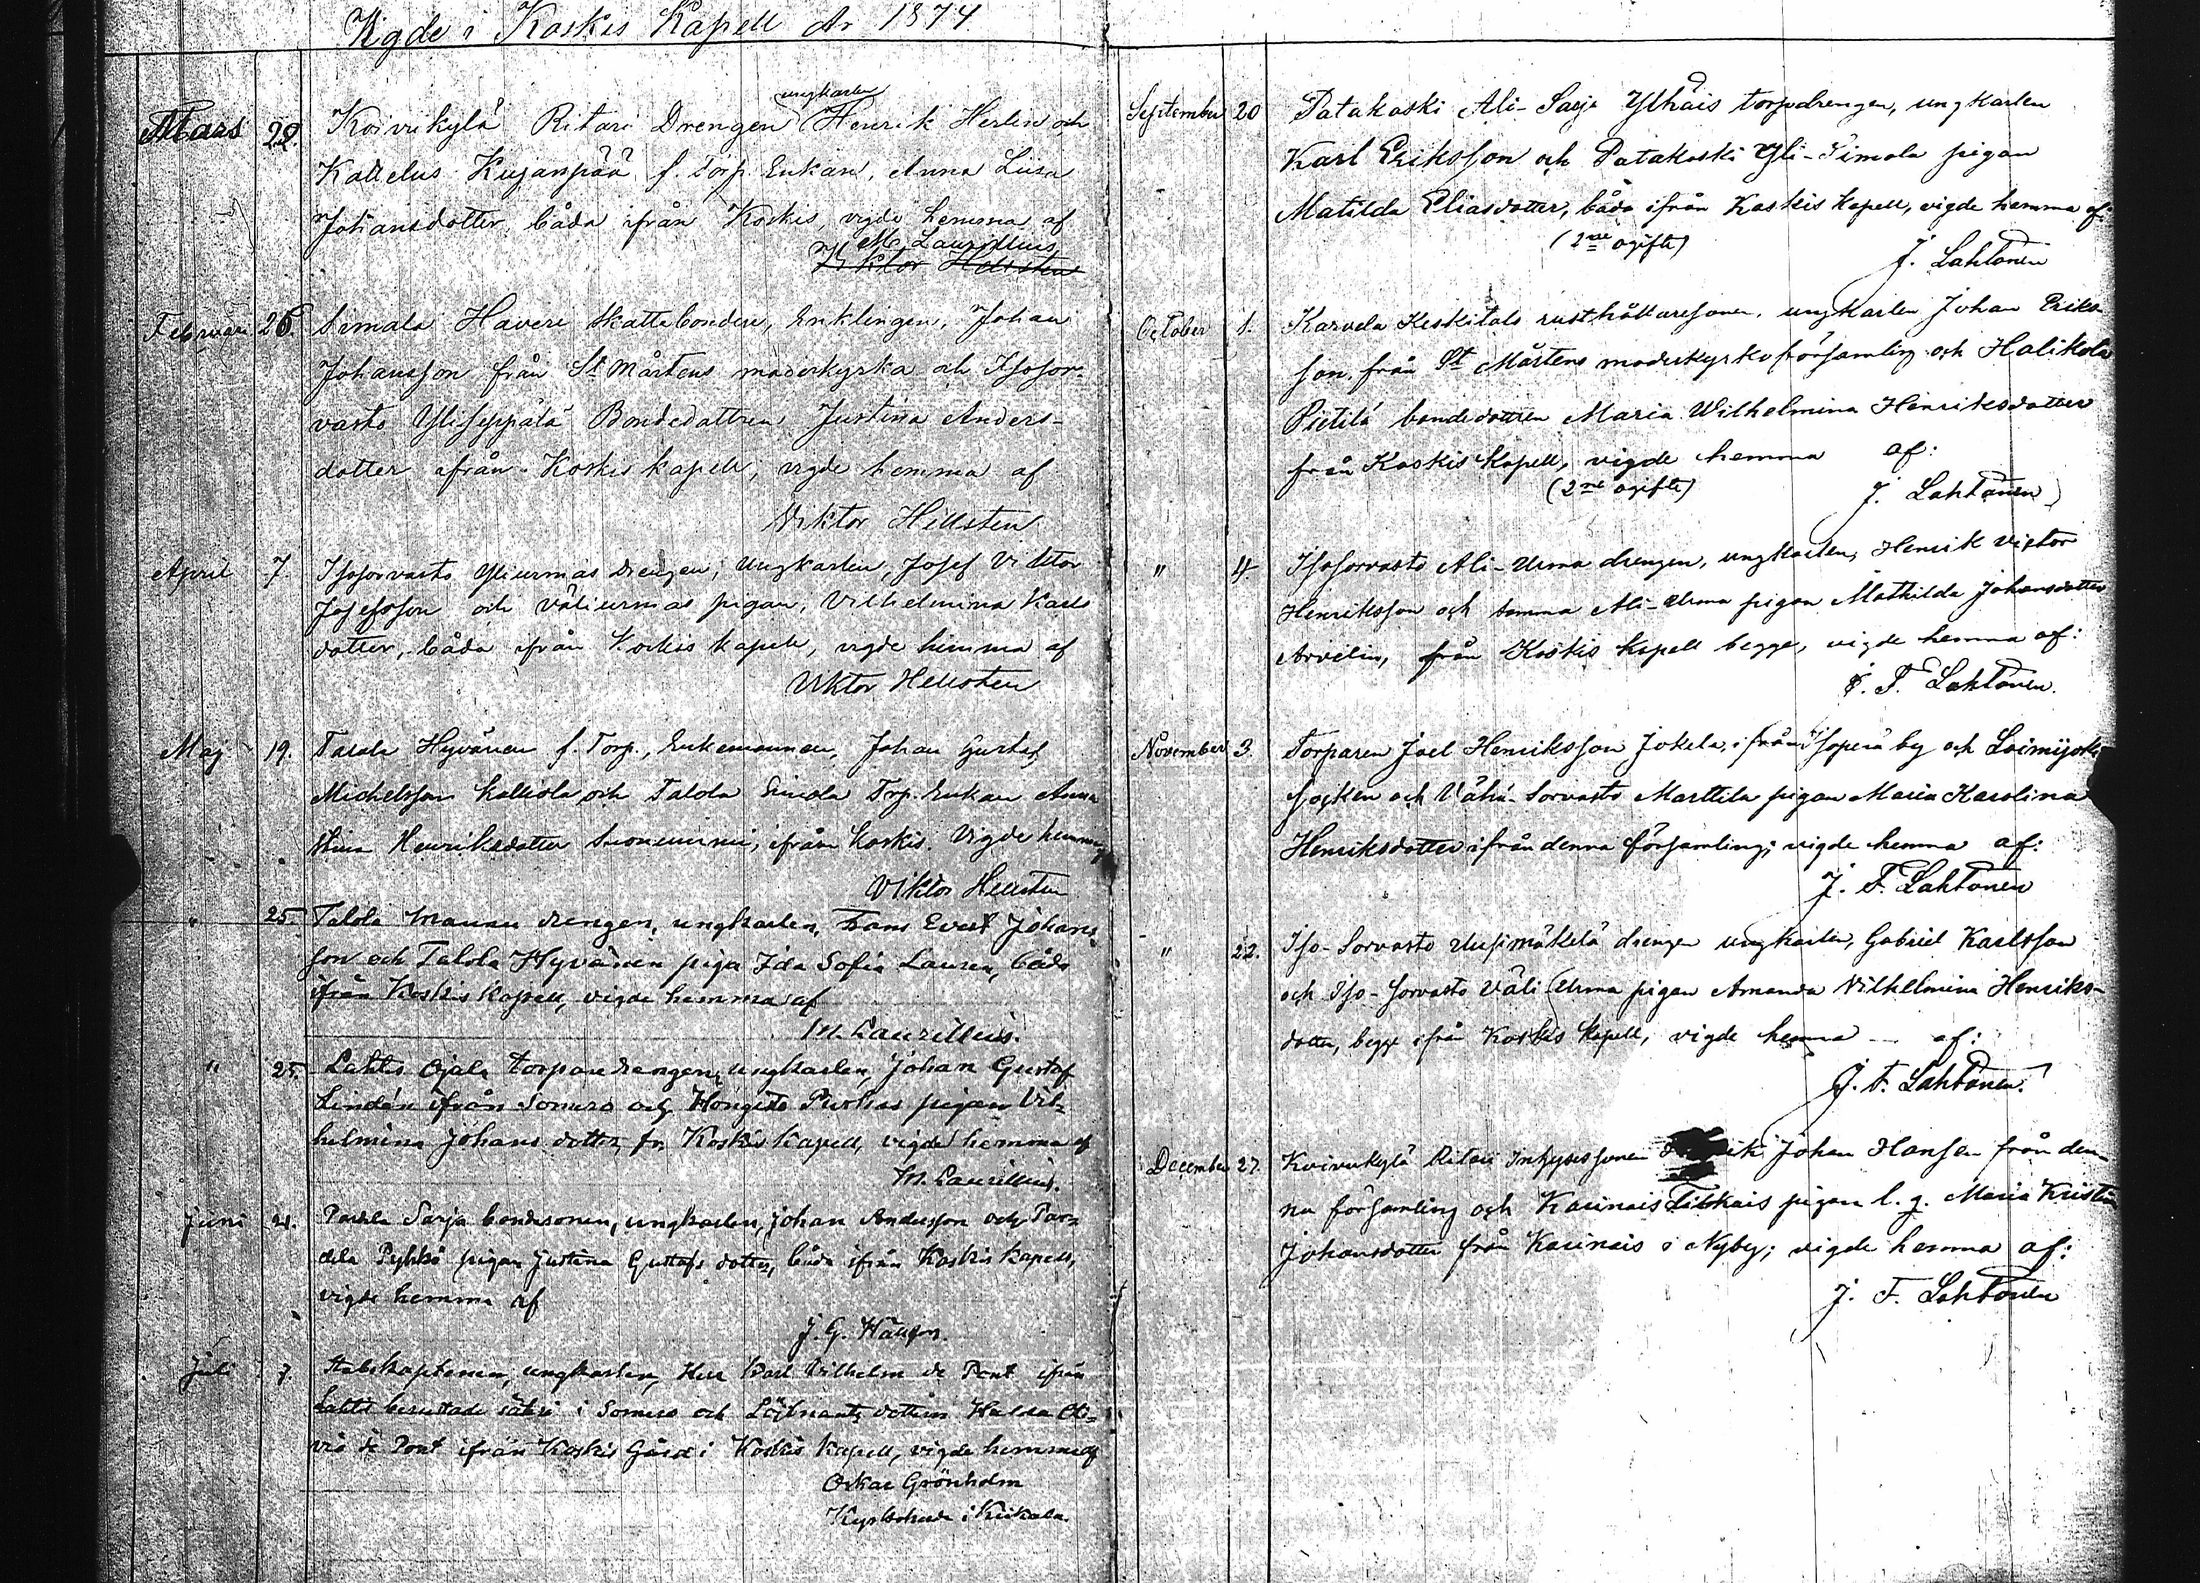 Vigde i Koskis Kapell År 1874.
ungkarlen
Mars 22. Koivukylä Ritari Drengen Henrik Herlin och
Kattelus Kujanpää f. Torp. Enkan, Anna Lisa
Johansdotter, båda ifrån Koskis, vigde hemma af
M. Laurillius
Viktor Hellsten
Februari 26. Simala Haveri Skattebonden, Enklingen, Johan
Johansson från St Mårtens moderkyrka och Isosor-
vasto Yliseppälä Bondedottren Justina Anders-
dotter ifrån Koskis kapell, vigde hemma af
Viktor Hellsten
April 7. Isosorvasto Yliurmas drengen, Ungkarlen, Josef Viktor
Josefsson och Väliurmas pigan, Vilhelmina Karls
dotter, båda ifrån Koskis kapell, vigde hemma af
Viktor Hellsten
Maj 19. Talola Hyvänen f. Torp., Enkemannen, Johan Gustaf
Michelsson Kalliola och Talola Torp. Enkan Anna
Henriksdotter ifrån Koskis. Vigde hemma af
Viktor Hellsten
" 25. Talola Mannu drengen, ungkarlen, Frans Evert Johans
son och Talola Hyvänen piga Ida Sofia Lauren, båda
ifrån Koskis Kapell, vigde hemma af
M. Laurillius.
" 25. Lahto Ojala torparedrengen, ungkarlen, Johan Gustaf
Lindén ifrån Somero och Hongisto pigan Vil-
helmina Johans dotter, fr. Koskis Kapell, vigde hemma af
M. Laurillius.
Juni 21. Partela Sarja bondesonen, ungkarlen, Johan Andersson och Par-
tela Pyhkö pigan Justina Gustafs dotter, båda ifrån Koskis kapell,
vigde hemma af
J. G.
Juli 7. Stabskaptenen, ungkarlen, Herr Karl Vilhelm de Pont ifrån
Lahto berustade säteri i Somero och Löjtnants dottern Hulda Oli-
via de Pont ifrån Koskis Gård i Koskis Kapell, vigde hemma af
Oskar Grönholm
Kyrkoherde i Kiikala.
September 20 Patakoski Ali-Sarje Ylhäis torpdrengen, ungkarlen
Karl Eriksson och Patakoski Yli-Simola pigan
Matilda Eliasdotter, båda ifrån Koskis Kapell, vigde hemma af:
(2ne ogifte)
J. Lahtonen
October 1. Karvela Keskitalo rusthållaresonen, ungkarlen Johan Eriks-
son, från St Mårtens moderkyrkoförsamling och Halikola
Pietilä bondedottren Maria Wilhelmina Henriksdotter
från Koskis Kapell, vigde hemma af:
(2ne ogifte)
J. Lahtonen
" 4. Isosorvasto Ali-Urma drengen, ungkarlen, Henrik Victor
Henriksson och samma Ali-Urma pigan Mathilda Johansdotter
Arvelin, från Koskis kapell begge, vigde hemma af:
J. F. Lahtonen.
November 3. Torparen Joel Henriksson Jokela, ifrån Isoperä by och Loimijoki
socken och Vähä-Sorvasto Marttila pigan Maria Karolina
Henriksdotter ifrån denna församling; vigde hemma af:
J. F. Lahtonen
" 22. Iso-Sorvasto Uusimäkelä drengen ungkarlen, Gabriel Karlsson
och Iso-Sorvasto Väli Urma pigan Amanda Vilhelmina Henriks-
dotter, begge ifrån Koskis kapell, vigde hemma af:
J. F. Lahtonen.
December 27. Koivukylä Ritari Inhysessonen Johan Hansen från den-
na församling och Karinais pigan l. g. Maria Kristina
Johansdotter från Karinais i Nyby; vigde hemma af:
J. F. Lahtonen